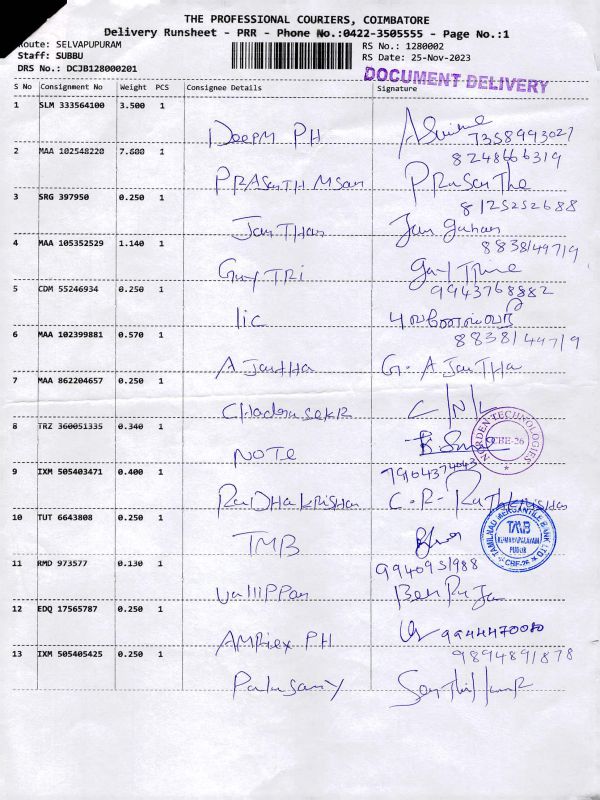 THE PROFESSIONAL COURIERS, COIMBATORE
Delivery Runsheet - PRR - Phone No.:0422-3505555 - Page No.:1
Route: SELVAPUPURAM
RS No.: 1280002
Staff: SUBBU
RS Date: 25-Nov-2023
DRS No.: DCJB128000201
DOCUMENT DELIVERY
S No Consignment No Weight PCS Consignee Details Signature
1 SLM 333564100 3.500 1
Deepm PH
7358993027
2 MAA 102548220 7.600 1
8248666319
PRASanTH Msan
3 SRG 397950 0.250 1
8125252688
JanTHan Jan guhan
4 MAA 105352529 1.140 1
8838149719
GayTRi
5 CDM 55246934 0.250 1
9943768882
lic
6 MAA 102399881 0.570 1
8838144719
AJanTHa G. AJanTHa
7 MAA 862204657 0.250 1
ChadraseKR
8 TRZ 360051335 0.340 1
NORDEN TECHNOLOGIES
CBE-26
NOTE
9 IXM 505403471 0.400 1
7904374043
RaDHakrisHan
10 TUT 6643808 0.250 1
TAMILNAD MERCANTILE BANK LTD.
TMB
CBE-26
TMB
11 RMD 973577 0.130 1
9940951988
Vallippan
12 EDQ 17565787 0.250 1
AMRiex PH 9944470080
13 IXM 505405425 0.250 1
9894891878
Palusamy